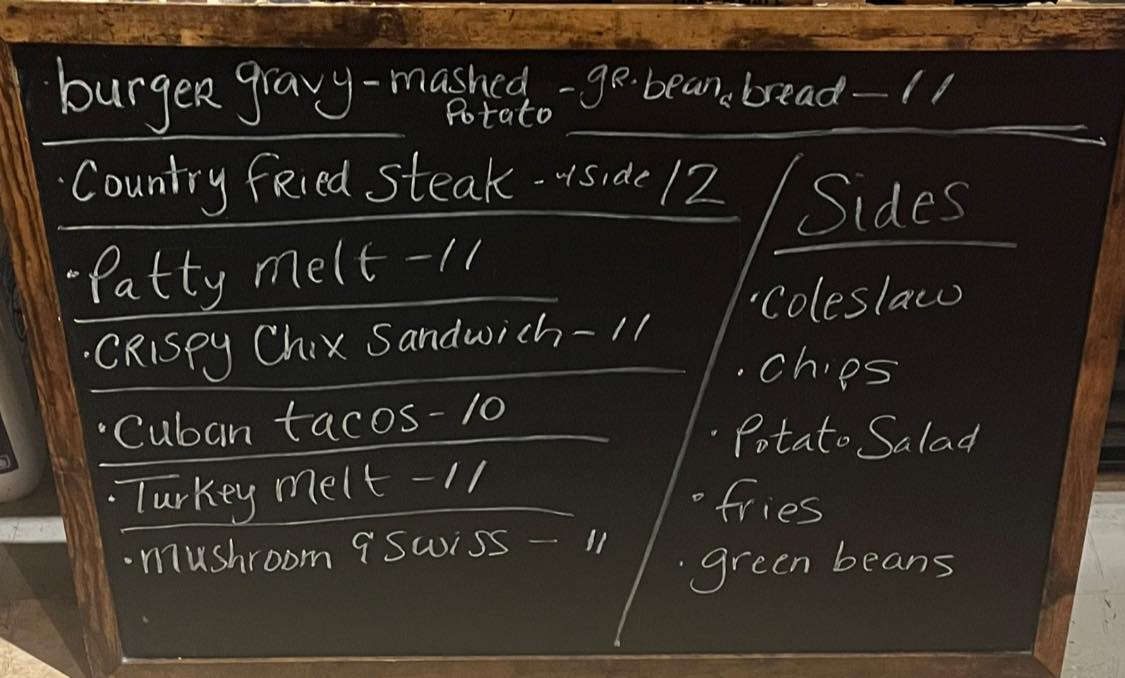 burger gravy - mashed Potato - gr. bean & bread - 11
· Country fried steak - w/ side 12
· Patty melt - 11
· Crispy Chix Sandwich - 11
· Cuban tacos - 10
· Turkey melt - 11
· mushroom & swiss - 11
Sides
· coleslaw
· chips
· Potato Salad
· fries
· green beans